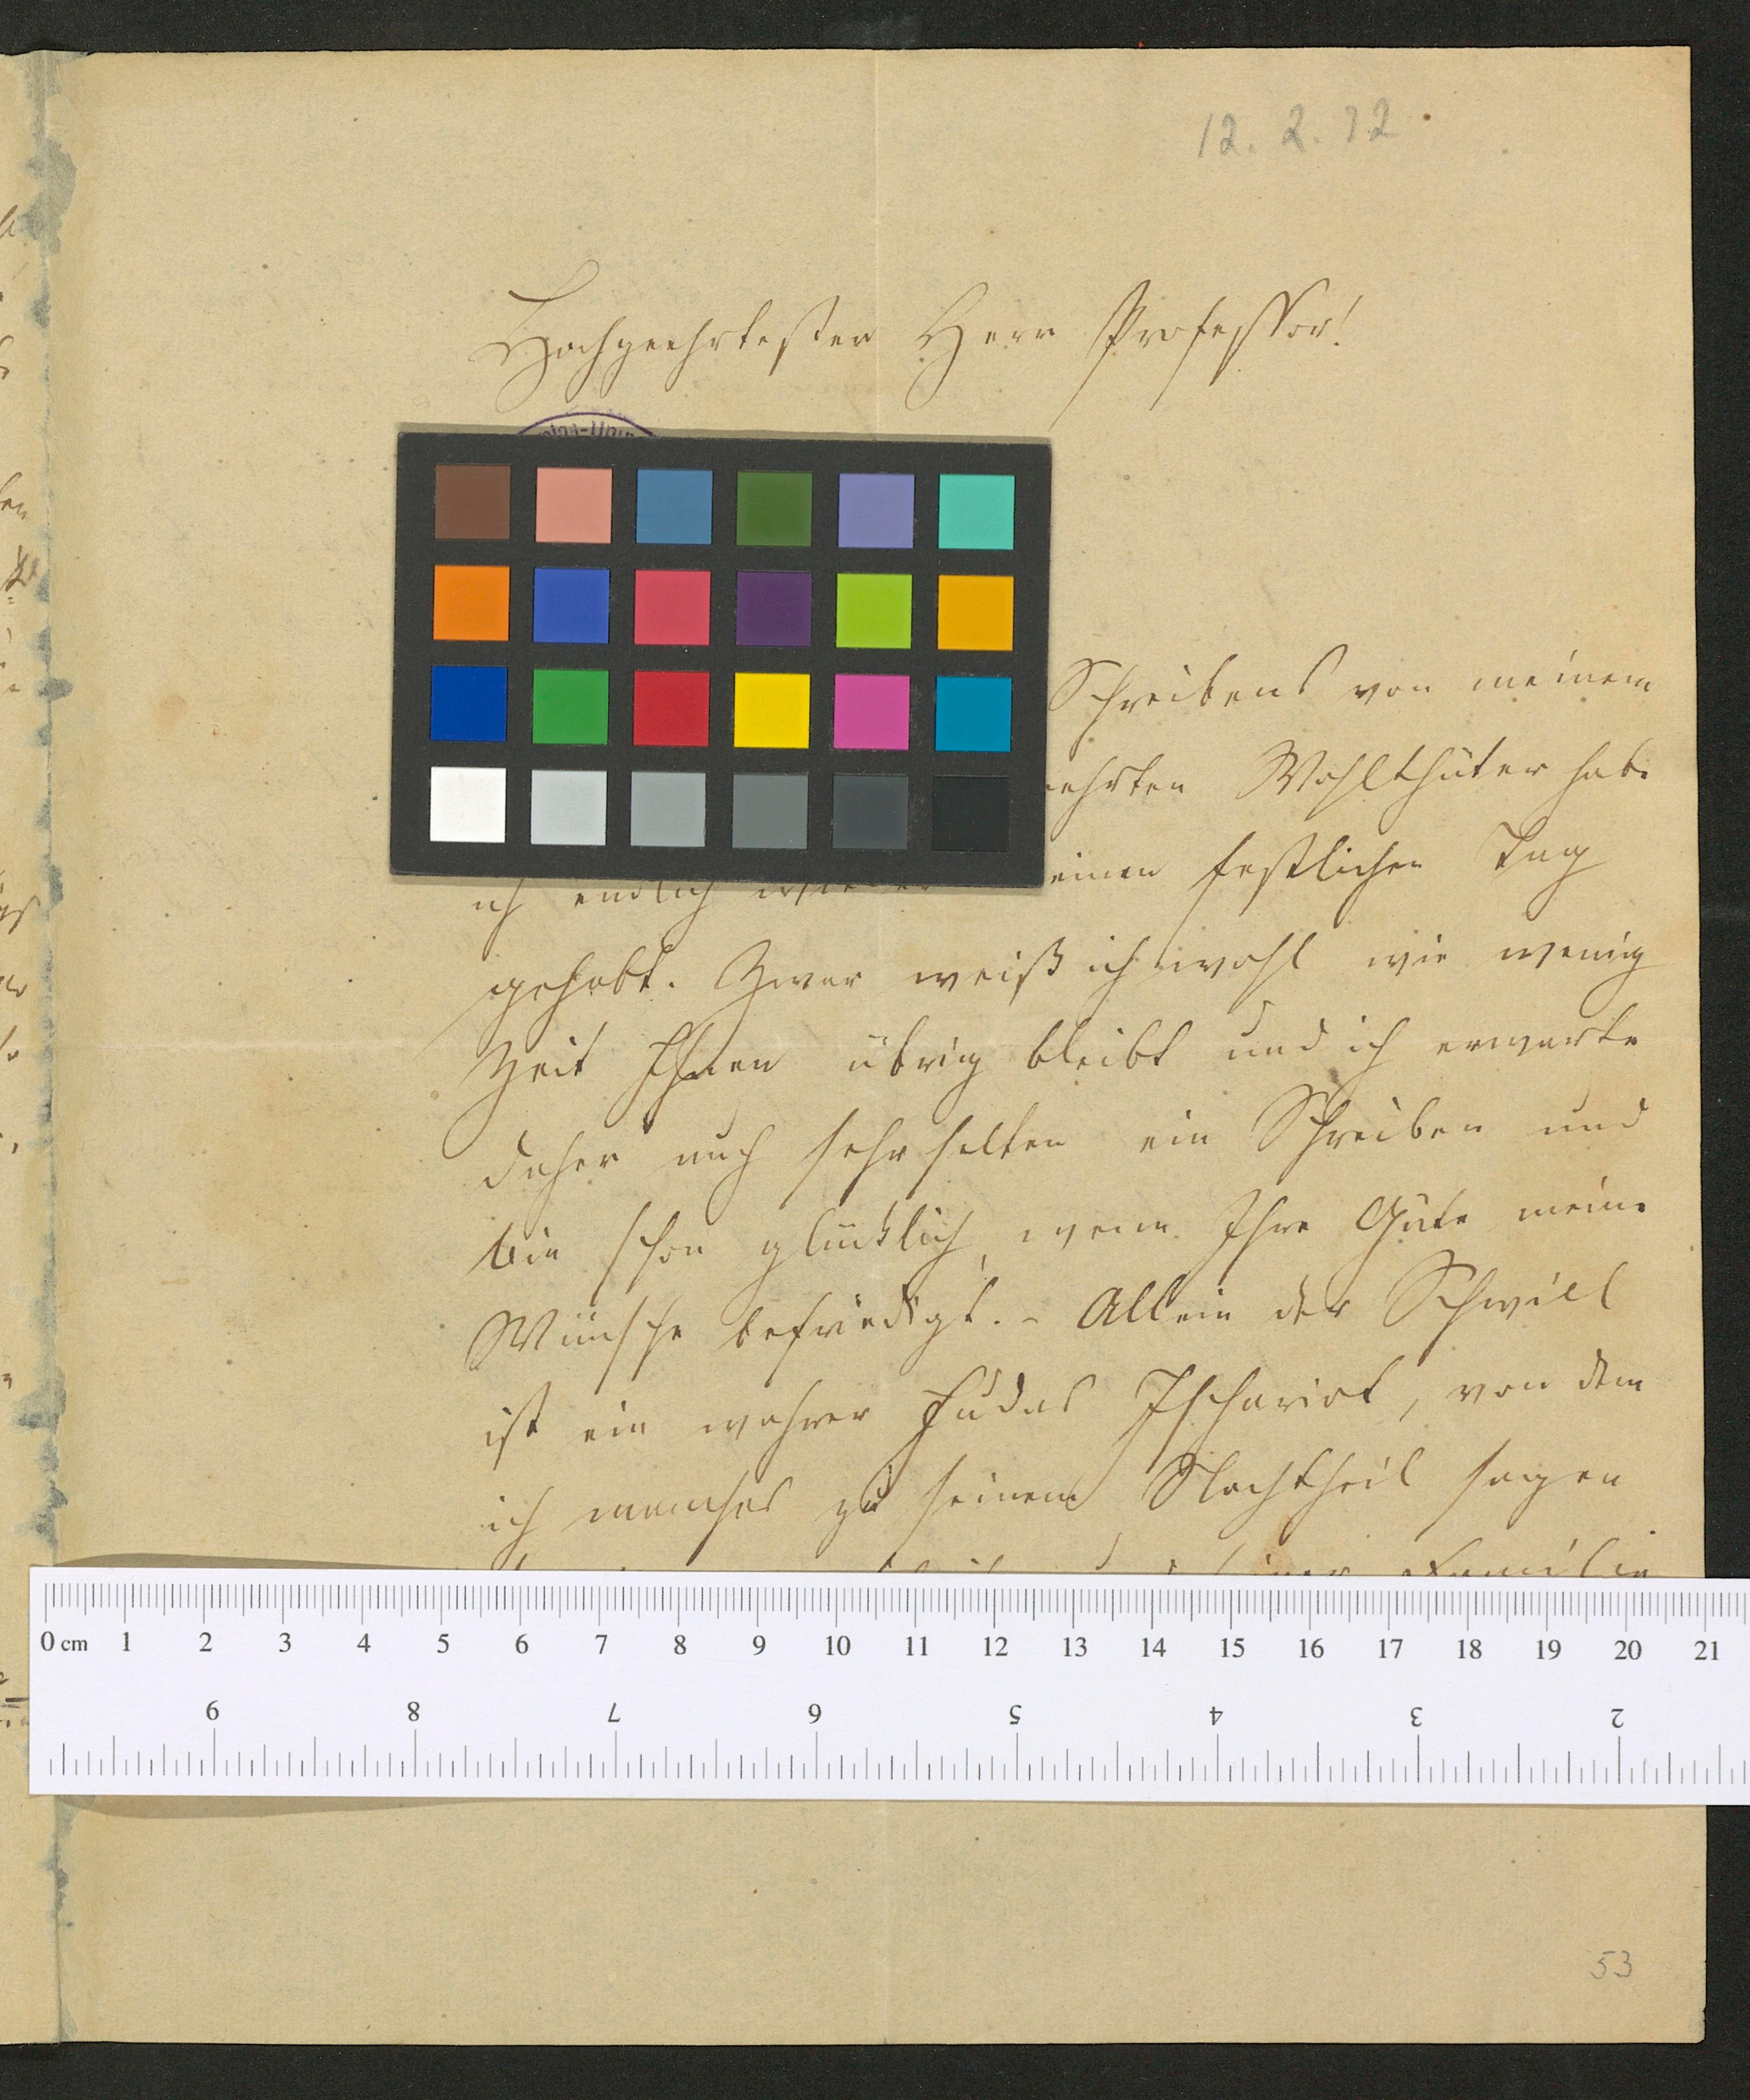 12. 2. 72
Hochgeehrtester Herr Professor!
Schreibens von meinem
ehrten Wohlthäter habe
ich endlich wieder einen festlichen Tag
gehabt. Zwar weiß ich wohl wie wenig
Zeit Ihnen übrig bleibt und ich erwarte
daher auch sehr selten ein Schreiben und
bin schon glücklich, wenn Ihre Güte meine
Wünsche befriedigt. - Allein der Schwill
ist ein wahrer Judas Ischariot, von dem
ich manches zu seinem Nachtheil sagen
einer Familie
0 cm 1 2 3 4 5 6 7 8 9 10 11 12 13 14 15 16 17 18 19 20 21
9 8 7 6 5 4 3 2
53